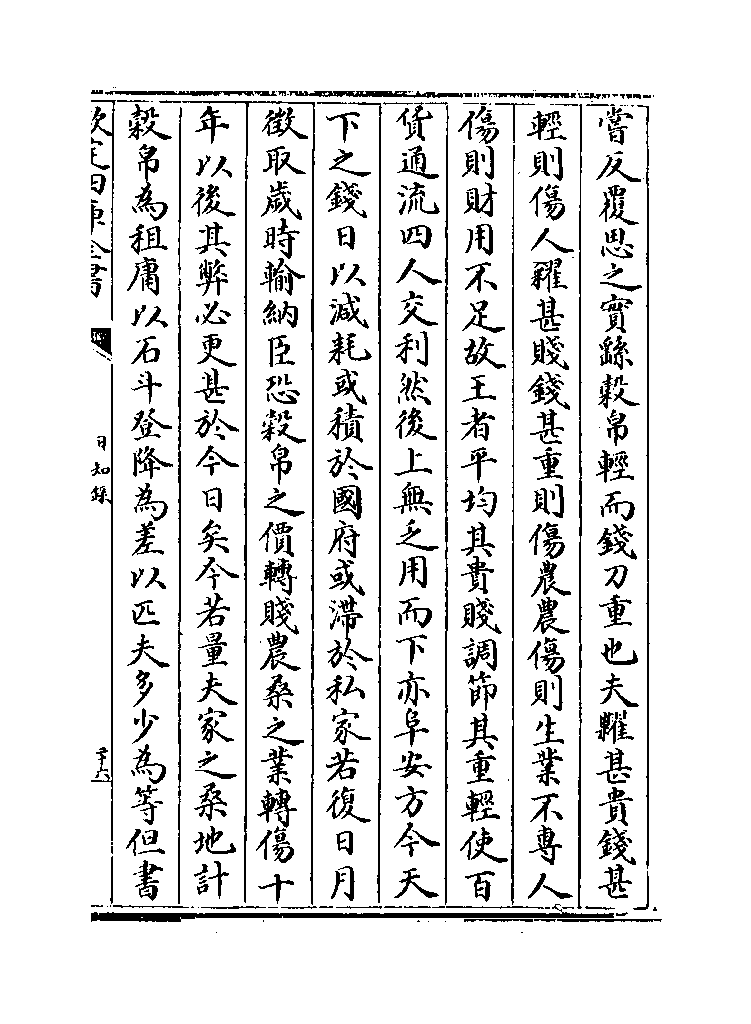 嘗反覆思之實繇榖帛輕而錢刀重也夫糶甚貴錢甚
輕則傷人糴甚賤錢甚重則傷農農傷則生業不專人
傷則財用不足故王者平均其貴賤調節其重輕使百
貨通流四人交利然後上無乏用而下亦阜安方今天
下之錢日以減耗或積於國府或滯於私家若復日月
徴取歲時輸納臣恐榖帛之價轉賤農桑之業轉傷十
年以後其弊必更甚於今日矣今若量夫家之桑地計
榖帛為租庸以石斗登降為差以匹夫多少為等但書
欽定四庫全書
日知錄
二十六